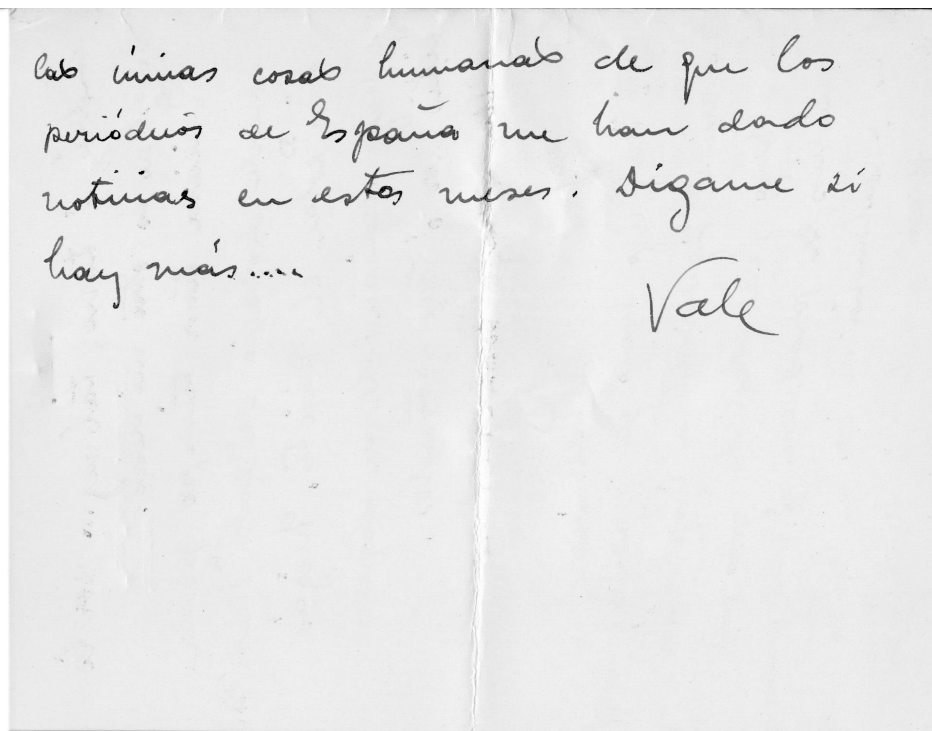 las únicas cosas humanas de que los
periódicos de España me han dado
noticias en estos meses. Dígame si
hay más....
Vale